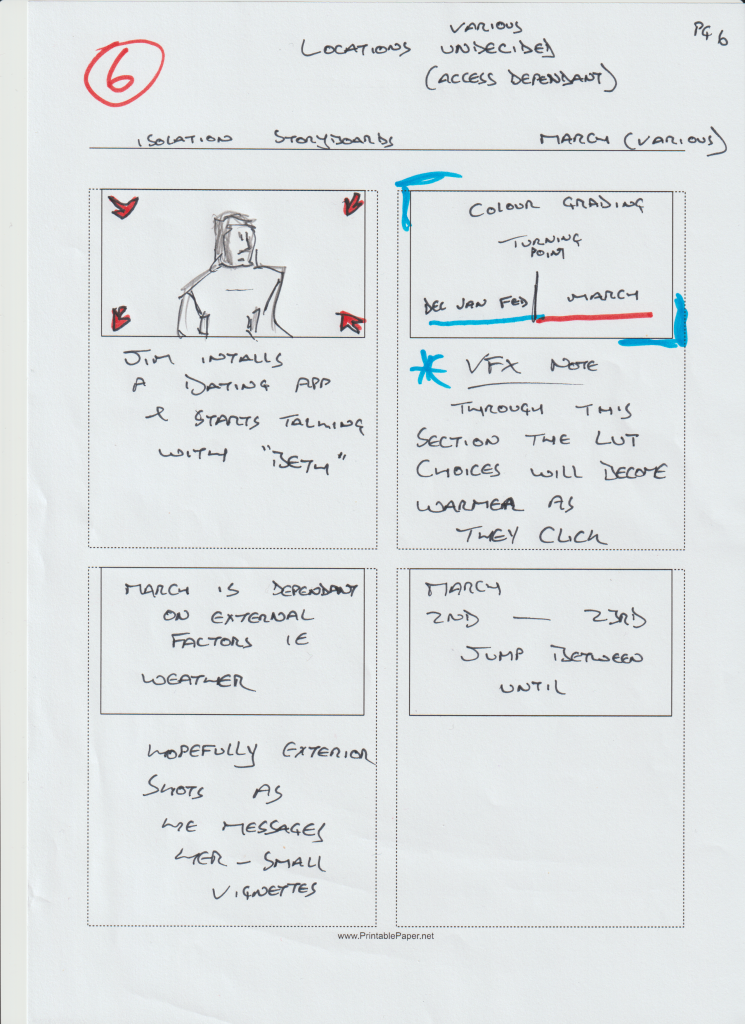 6
VARIOUS
LOCATIONS UNDECIDED
(ACCESS DEPENDANT)
PG 6
ISOLATION STORYBOARDS
MARCH (VARIOUS)
JIM INTALLS
A DATING APP
& STARTS TALKING
WITH "BETH"
COLOUR GRADING
TURNING
POINT
DEC JAN FEB
MARCH
* VFX NOTE
THROUGH THIS
SECTION THE LUT
CHOICES WILL BECOME
WARMER AS
THEY CLICK
MARCH IS DEPENDANT
ON EXTERNAL
FACTORS IE
WEATHER
HOPEFULLY EXTERIOR
SHOTS AS
HE MESSAGES
HER - SMALL
VIGNETTES
MARCH
2ND — 23RD
JUMP BETWEEN
UNTIL
www.PrintablePaper.net